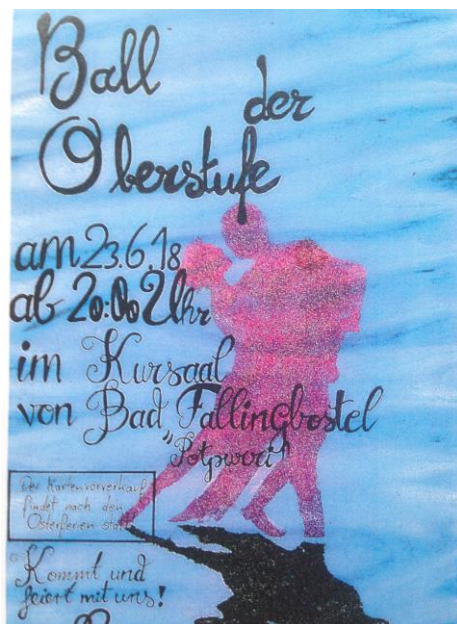 Ball
der
Oberstufe
am 23.6.18
ab 20:00 Uhr
im Kursaal
von Bad Fallingbostel
"Potpwori"
Der Kartenvorverkauf
findet nach den
Osterferien statt
Kommt und
feiert mit uns!